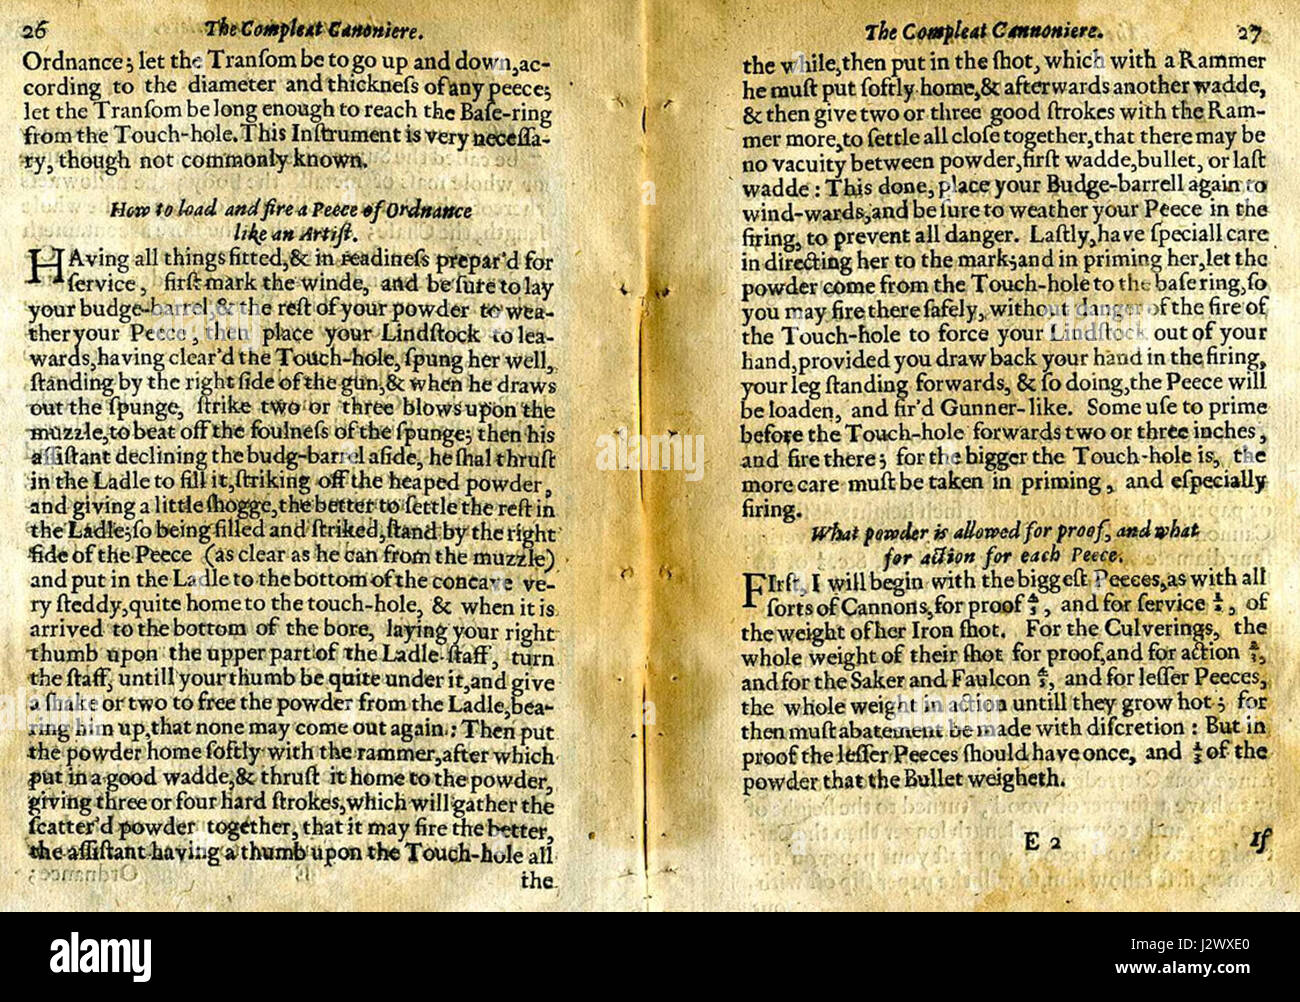 26
The Compleat Canoniere.
Ordnance; let the Tranſom be to go up and down, ac-
cording to the diameter and thickneſs of any peece;
let the Tranſom be long enough to reach the Baſe-ring
from the Touch-hole. This Inſtrument is very neceſſa-
ry, though not commonly known.
How to load and fire a Peece of Ordnance
like an Artiſt.
HAving all things fitted, & in readineſs prepar'd for
ſervice, firſt mark the winde, and be ſure to lay
your budge-barrel, & the reſt of your powder to wea-
ther your Peece, then place your Lindſtock to lea-
wards, having clear'd the Touch-hole, ſpung her well,
ſtanding by the right ſide of the gun, & when he draws
out the ſpunge, ſtrike two or three blows upon the
muzzle, to beat off the foulneſs of the ſpunge; then his
aſſiſtant declining the budg-barrel aſide, he ſhal thruſt
in the Ladle to fill it, ſtriking off the heaped powder,
and giving a little ſhogge, the better to ſettle the reſt in
the Ladle; ſo being filled and ſtriked, ſtand by the right
ſide of the Peece (as clear as he can from the muzzle)
and put in the Ladle to the bottom of the concave ve-
ry ſteddy, quite home to the touch-hole, & when it is
arrived to the bottom of the bore, laying your right
thumb upon the upper part of the Ladle-ſtaff, turn
the ſtaff, untill your thumb be quite under it, and give
a ſhake or two to free the powder from the Ladle, bea-
ring him up, that none may come out again: Then put
the powder home ſoftly with the rammer, after which
put in a good wadde, & thruſt it home to the powder,
giving three or four hard ſtrokes, which will gather the
ſcatter'd powder together, that it may fire the better,
the aſſiſtant having a thumb upon the Touch-hole all
the
The Compleat Cannoniere.
27
the while, then put in the ſhot, which with a Rammer
he muſt put ſoftly home, & afterwards another wadde,
& then give two or three good ſtrokes with the Ram-
mer more, to ſettle all cloſe together, that there may be
no vacuity between powder, firſt wadde, bullet, or laſt
wadde: This done, place your Budge-barrell again to
wind-wards, and be ſure to weather your Peece in the
firing, to prevent all danger. Laſtly, have ſpeciall care
in directing her to the mark; and in priming her, let the
powder come from the Touch-hole to the baſe ring, ſo
you may fire there ſafely, without danger of the fire of
the Touch-hole to force your Lindſtock out of your
hand, provided you draw back your hand in the firing,
your leg ſtanding forwards, & ſo doing, the Peece will
be loaden, and fir'd Gunner-like. Some uſe to prime
before the Touch-hole forwards two or three inches,
and fire there; for the bigger the Touch-hole is, the
more care muſt be taken in priming, and eſpecially
firing.
What powder is allowed for proof, and what
for action for each Peece.
FIrſt, I will begin with the biggeſt Peeces, as with all
ſorts of Cannons, for proof, and for ſervice, of
the weight of her Iron ſhot. For the Culverings, the
whole weight of their ſhot for proof, and for action,
and for the Saker and Faulcon, and for leſſer Peeces,
the whole weight in action untill they grow hot; for
then muſt abatement be made with diſcretion: But in
proof the leſſer Peeces ſhould have once, and of the
powder that the Bullet weigheth.
E 2
If
alamy
a
alamy
Image ID: J2WXE0
www.alamy.com